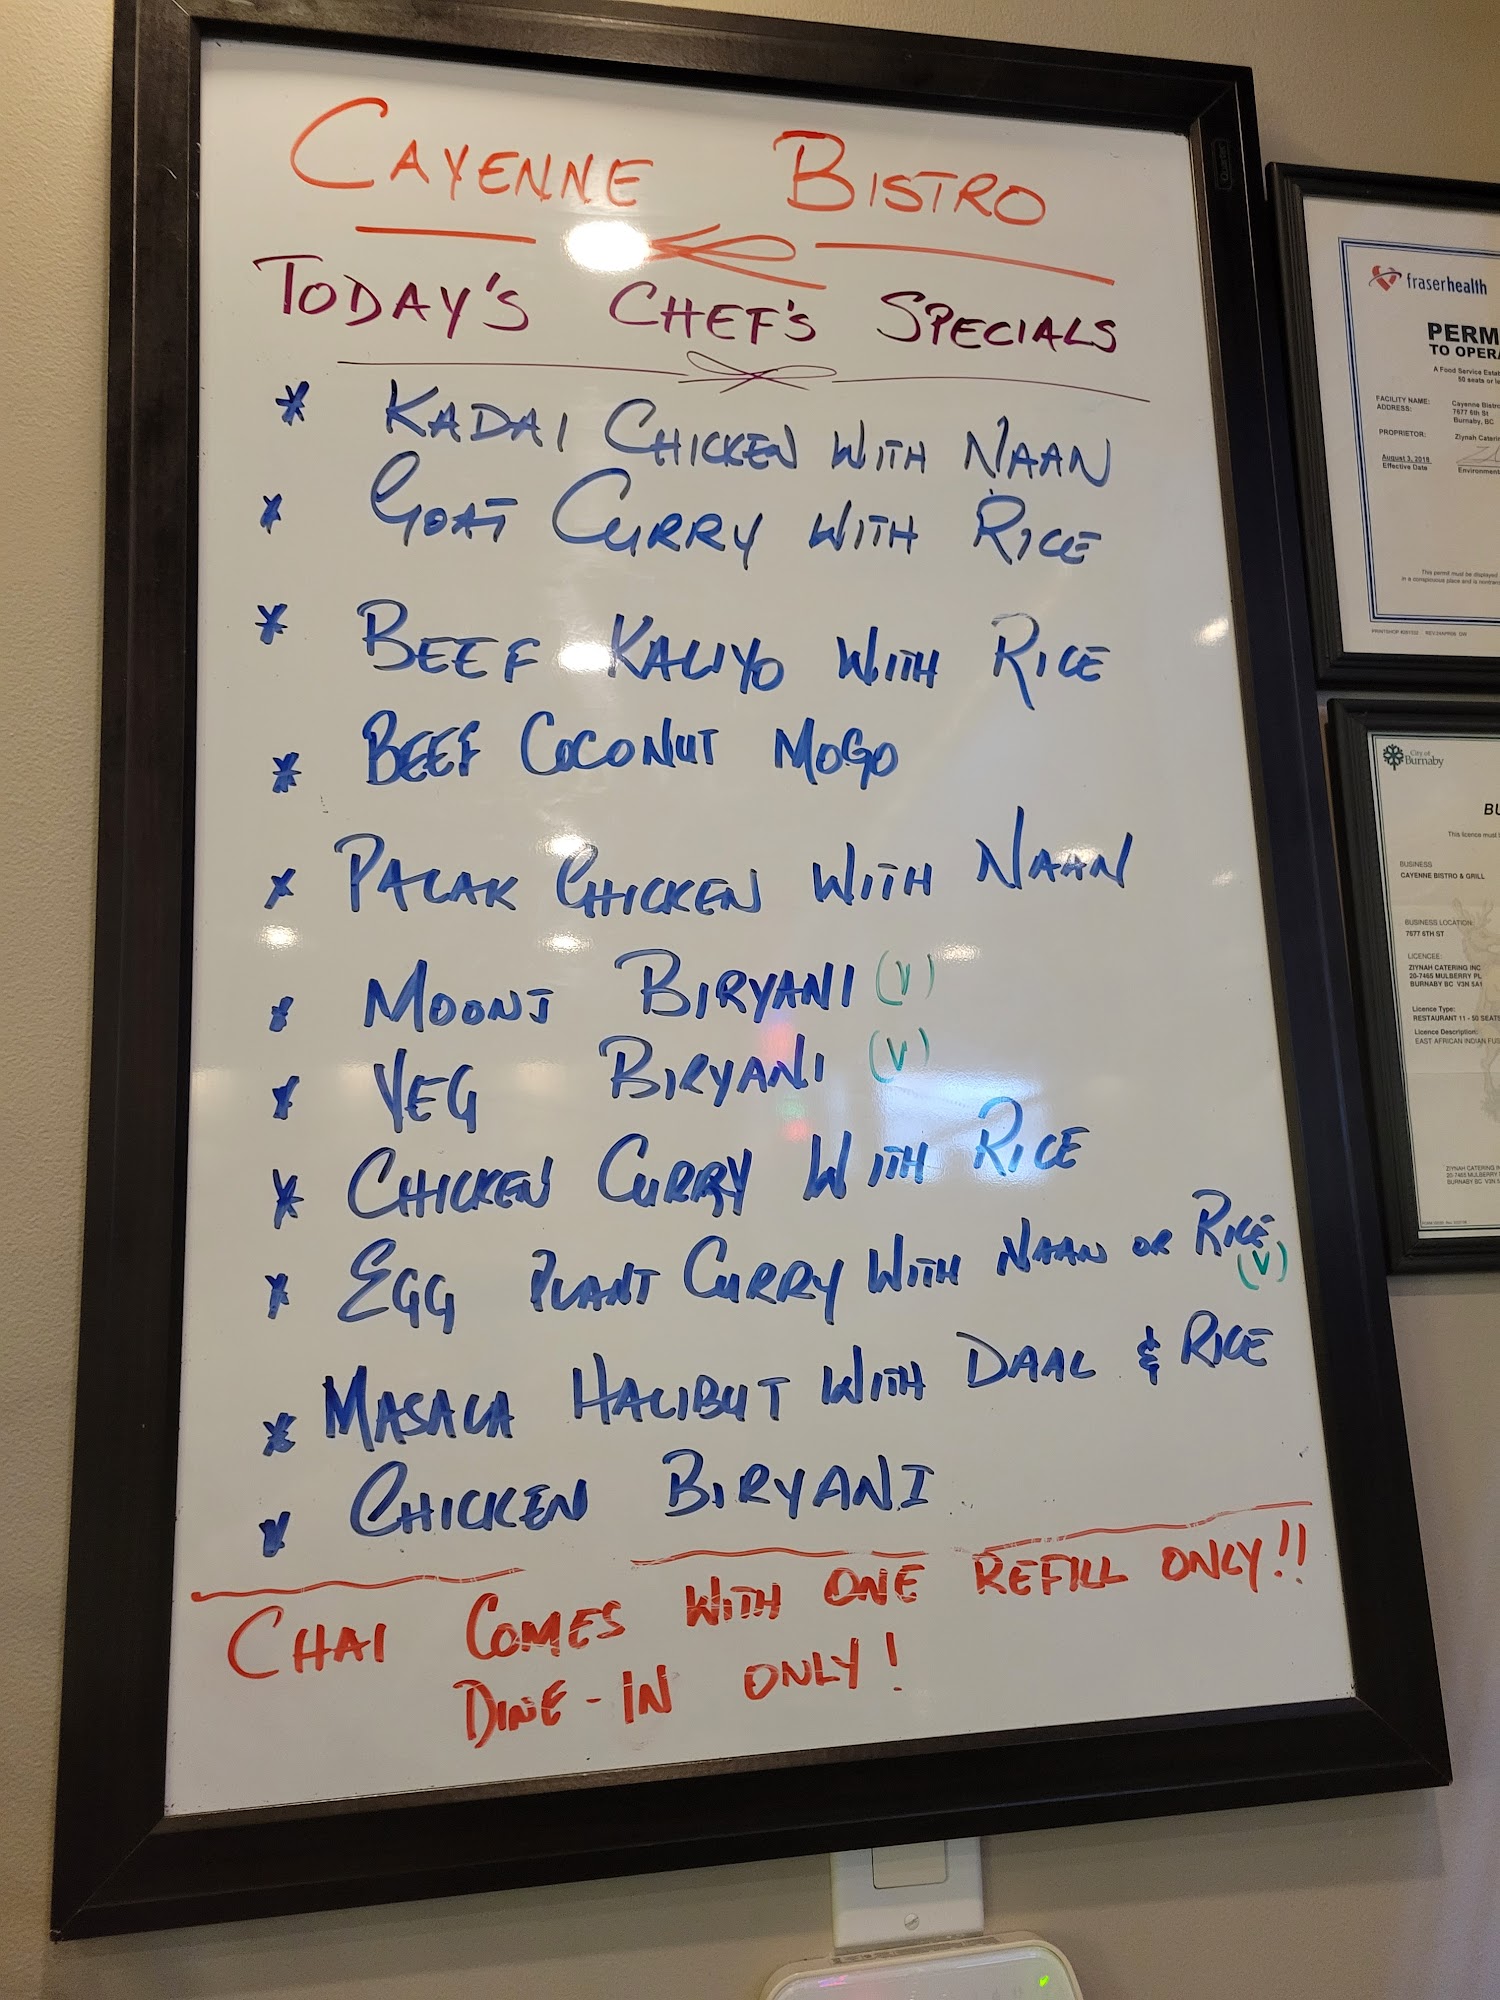 CAYENNE BISTRO
TODAY'S CHEF'S SPECIALS
* KADAI CHICKEN WITH NAAN
* GOAT CURRY WITH RICE
* BEEF KALIYO WITH RICE
* BEEF COCONUT MOGO
* PALAK CHICKEN WITH NAAN
* MOONJ BIRYANI (V)
* VEG BIRYANI (V)
* CHICKEN CURRY WITH RICE
* EGG PLANT CURRY WITH NAAN OR RICE
(V)
* MASALA HALIBUT WITH DAAL & RICE
* CHICKEN BIRYANI
CHAI COMES WITH ONE REFILL ONLY!!
DINE-IN ONLY!
Quartet
fraserhealth
PERM
TO OPERA
A Food Service Estab
50 seats or le
FACILITY NAME: Cayenne Bistro
ADDRESS: 7677 6th St
Burnaby, BC
PROPRIETOR: Ziynah Caterin
August 3, 2018
Effective Date
Environment
This permit must be displayed
in a conspicuous place and is nontrans
City of
Burnaby
BU
This licence must
BUSINESS
CAYENNE BISTRO & GRILL
BUSINESS LOCATION:
7677 6TH ST
LICENCEE:
ZIYNAH CATERING INC
20-7465 MULBERRY PL
BURNABY BC V3N 5A1
Licence Type:
RESTAURANT 11 - 50 SEATS
Licence Description:
EAST AFRICAN INDIAN FUS
ZIYNAH CATERING IN
20-7465 MULBERRY
BURNABY BC V3N 5